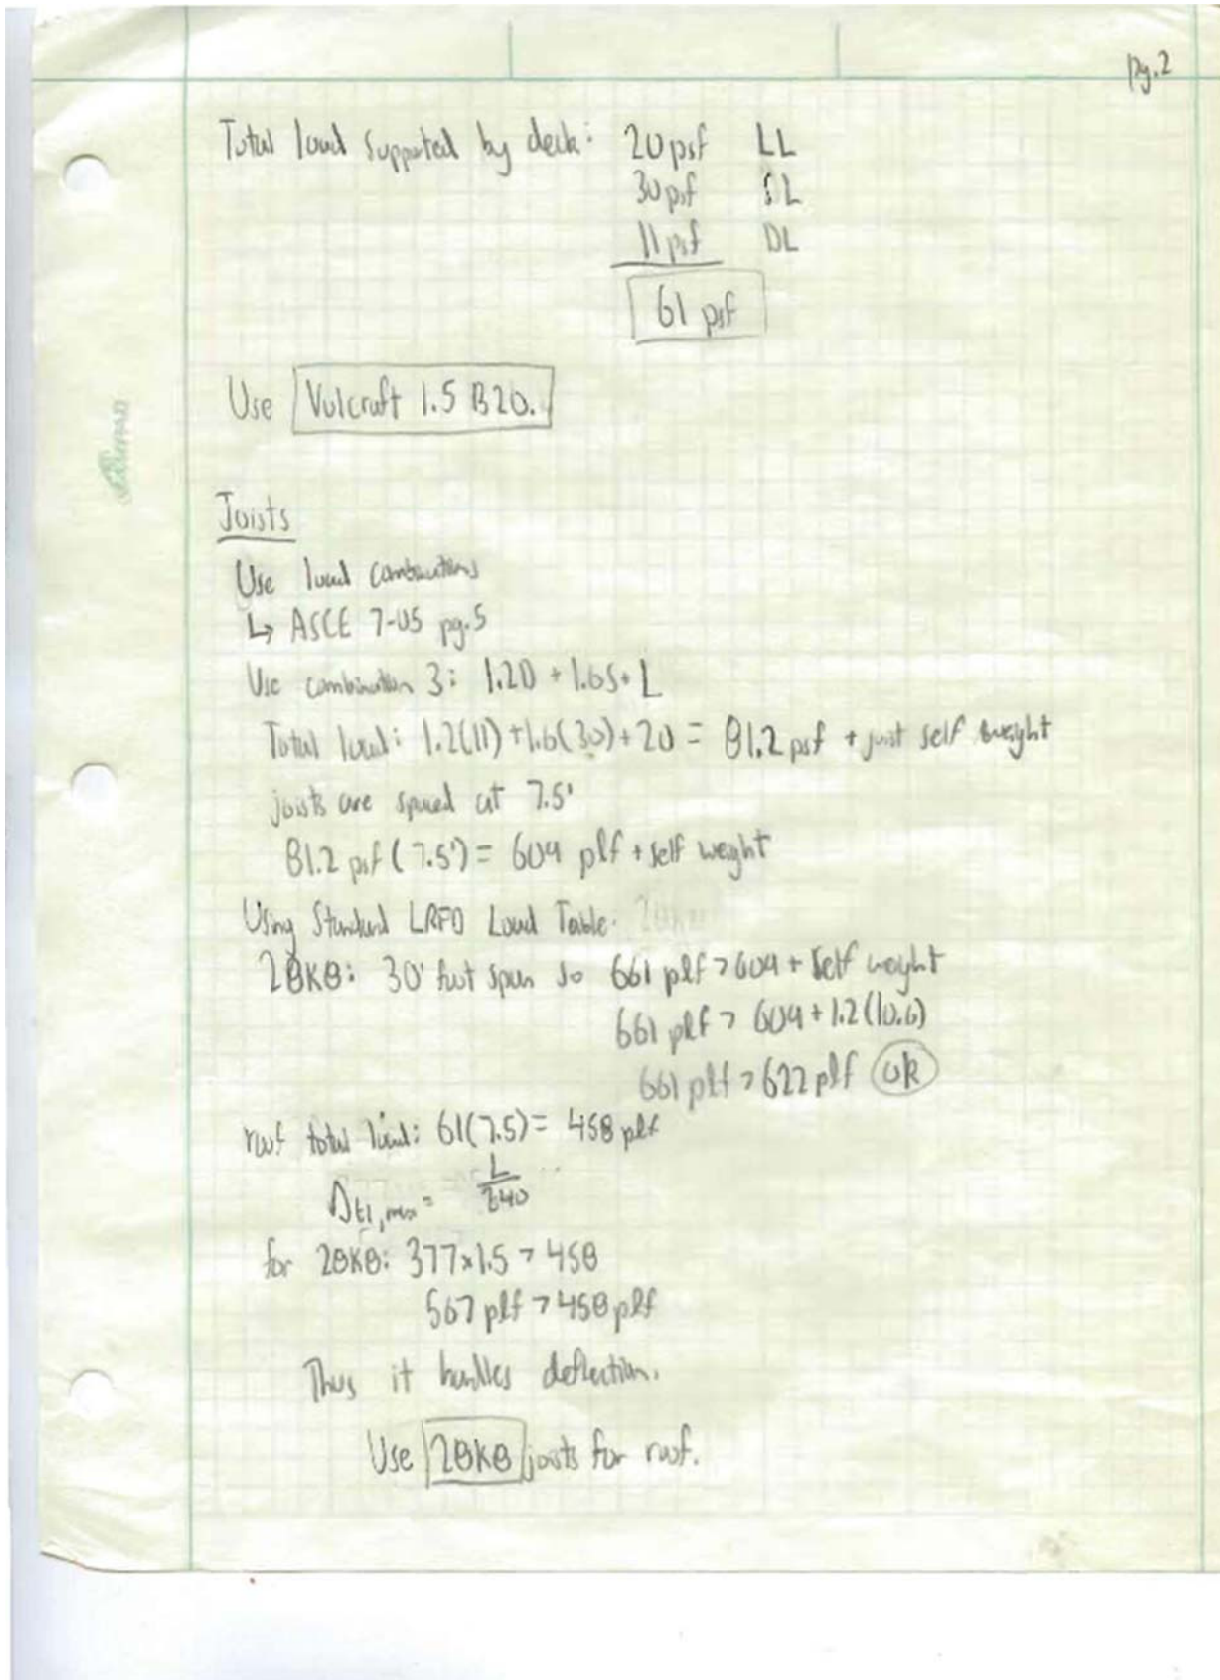 pg.2
Total load supported by deck: 20 psf LL
30 psf SL
11 psf DL
61 psf
Use Vulcraft 1.5 B20.
Joists
Use load combinations
↳ ASCE 7-05 pg.5
Use combination 3: 1.2D + 1.6S + L
Total load: 1.2(11) + 1.6(30) + 20 = 81.2 psf + joist self weight
joists are spaced at 7.5'
81.2 psf (7.5') = 609 plf + self weight
Using Standard LRFD Load Table:
28K8: 30' foot span so 661 plf > 609 + self weight
661 plf > 609 + 1.2(10.6)
661 plf > 622 plf OK
roof total load: 61(7.5) = 458 plf
Δtl, max = L/240
for 28K8: 377×1.5 > 458
567 plf > 458 plf
Thus it handles deflection.
Use 28K8 joists for roof.